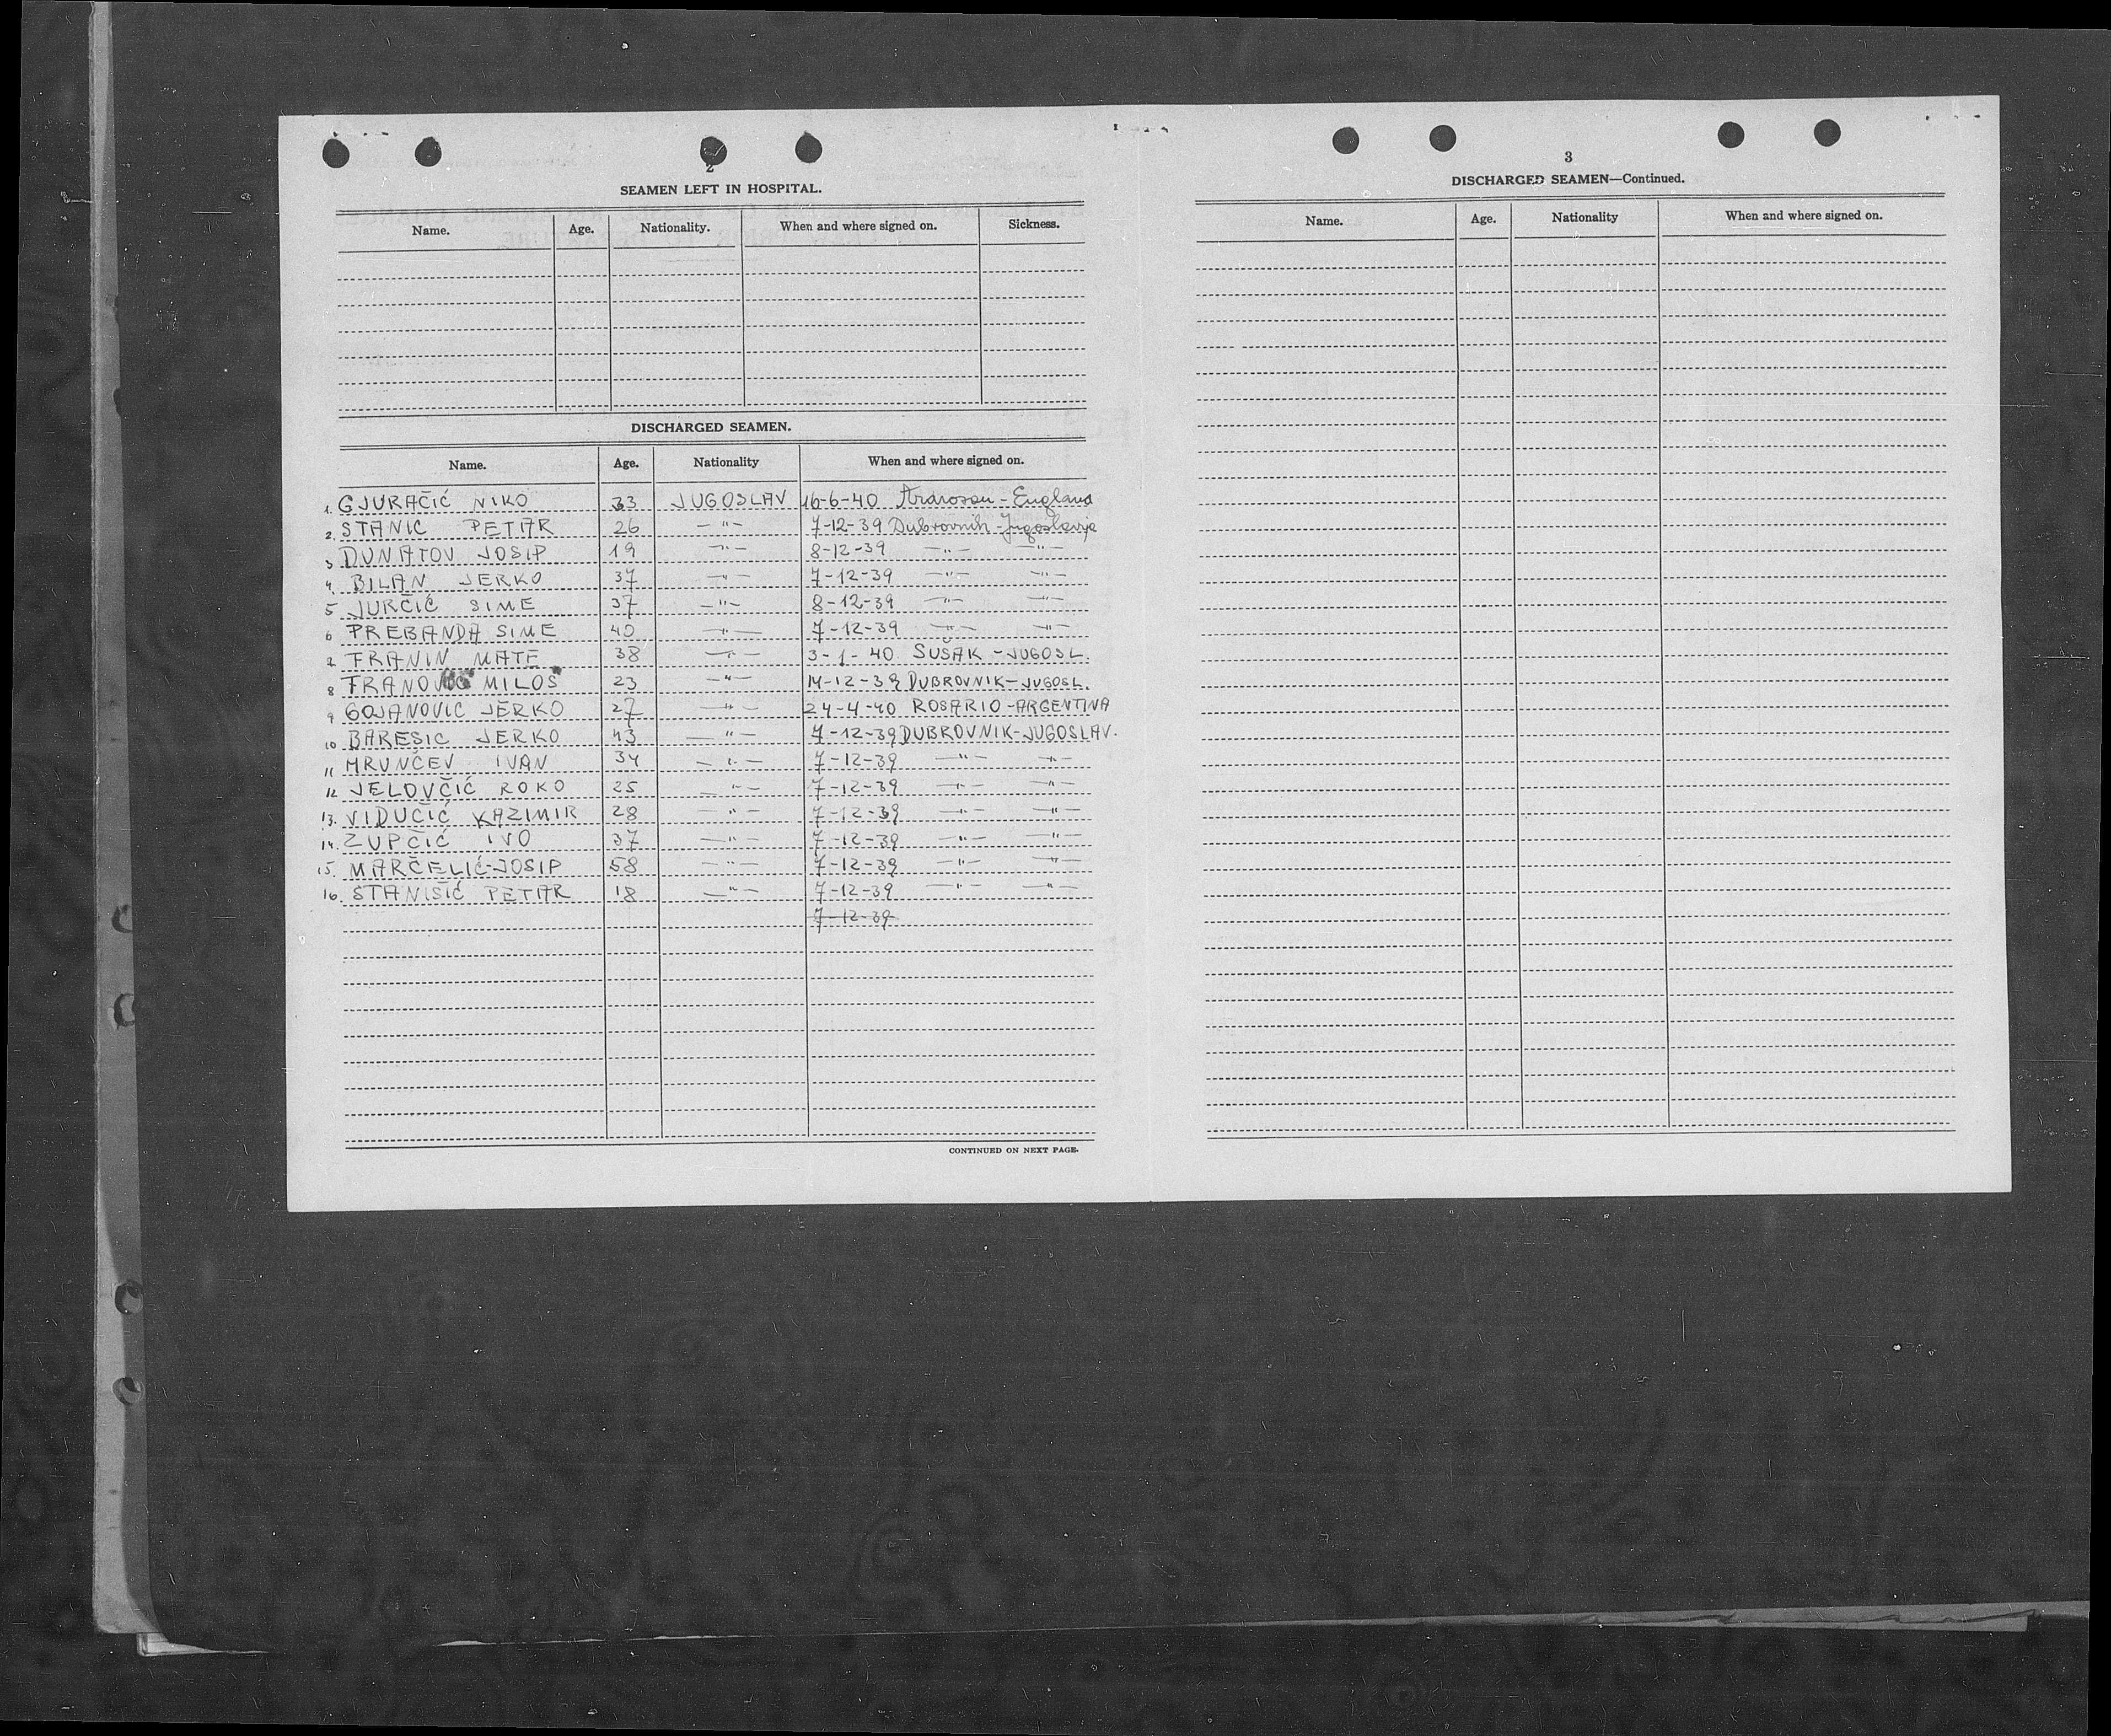 2
SEAMEN LEFT IN HOSPITAL.
Name. Age. Nationality. When and where signed on. Sickness.
DISCHARGED SEAMEN.
Name. Age. Nationality When and where signed on.
1. GJURAČIĆ NIKO 33 JUGOSLAV 16-6-40 Ardrosan - England
2. STANIC PETAR 26 —"— 7-12-39 Dubrovnik - Jugoslavija
3 DUNATOV JOSIP 19 —"— 8-12-39 —"— —"—
4. BILAN JERKO 37 —"— 7-12-39 —"— —"—
5 JURČIĆ SIME 37 —"— 8-12-39 —"— —"—
6 PREBANDA SIME 40 —"— 7-12-39 —"— —"—
7 FRANIN MATE 38 —"— 3-1-40 SUŠAK - JUGOSL.
8 MILOS 23 —"— 14-12-39 DUBROVNIK - JUGOSL.
9 GOJANOVIC JERKO 27 —"— 24-4-40 ROSARIO - ARGENTINA
10 BARESIC JERKO 43 —"— 7-12-39 DUBROVNIK - JUGOSLAV.
11 MRUNČEV IVAN 34 —"— 7-12-39 —"— —"—
12 JELOVČIĆ ROKO 25 —"— 7-12-39 —"— —"—
13. VIDUČIĆ KAZIMIR 28 —"— 7-12-39 —"— —"—
14. ZUPČIĆ IVO 37 —"— 7-12-39 —"— —"—
15. MARČELIĆ-JOSIP 58 —"— 7-12-39 —"— —"—
16. STANISIĆ PETAR 18 —"— 7-12-39 —"— —"—
7-12-39
CONTINUED ON NEXT PAGE.
3
DISCHARGED SEAMEN—Continued.
Name. Age. Nationality When and where signed on.